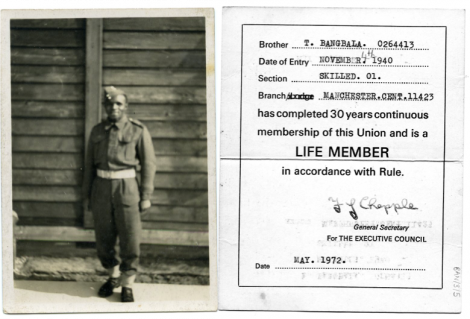 Brother T. BANGBALA. 0264413
Date of Entry NOVEMBER. 4th 1940
Section SKILLED. 01.
Branch MANCHESTER.CENT.11423
has completed 30 years continuous
membership of this Union and is a
LIFE MEMBER
in accordance with Rule.
General Secretary
For THE EXECUTIVE COUNCIL
Date MAY. 1972.